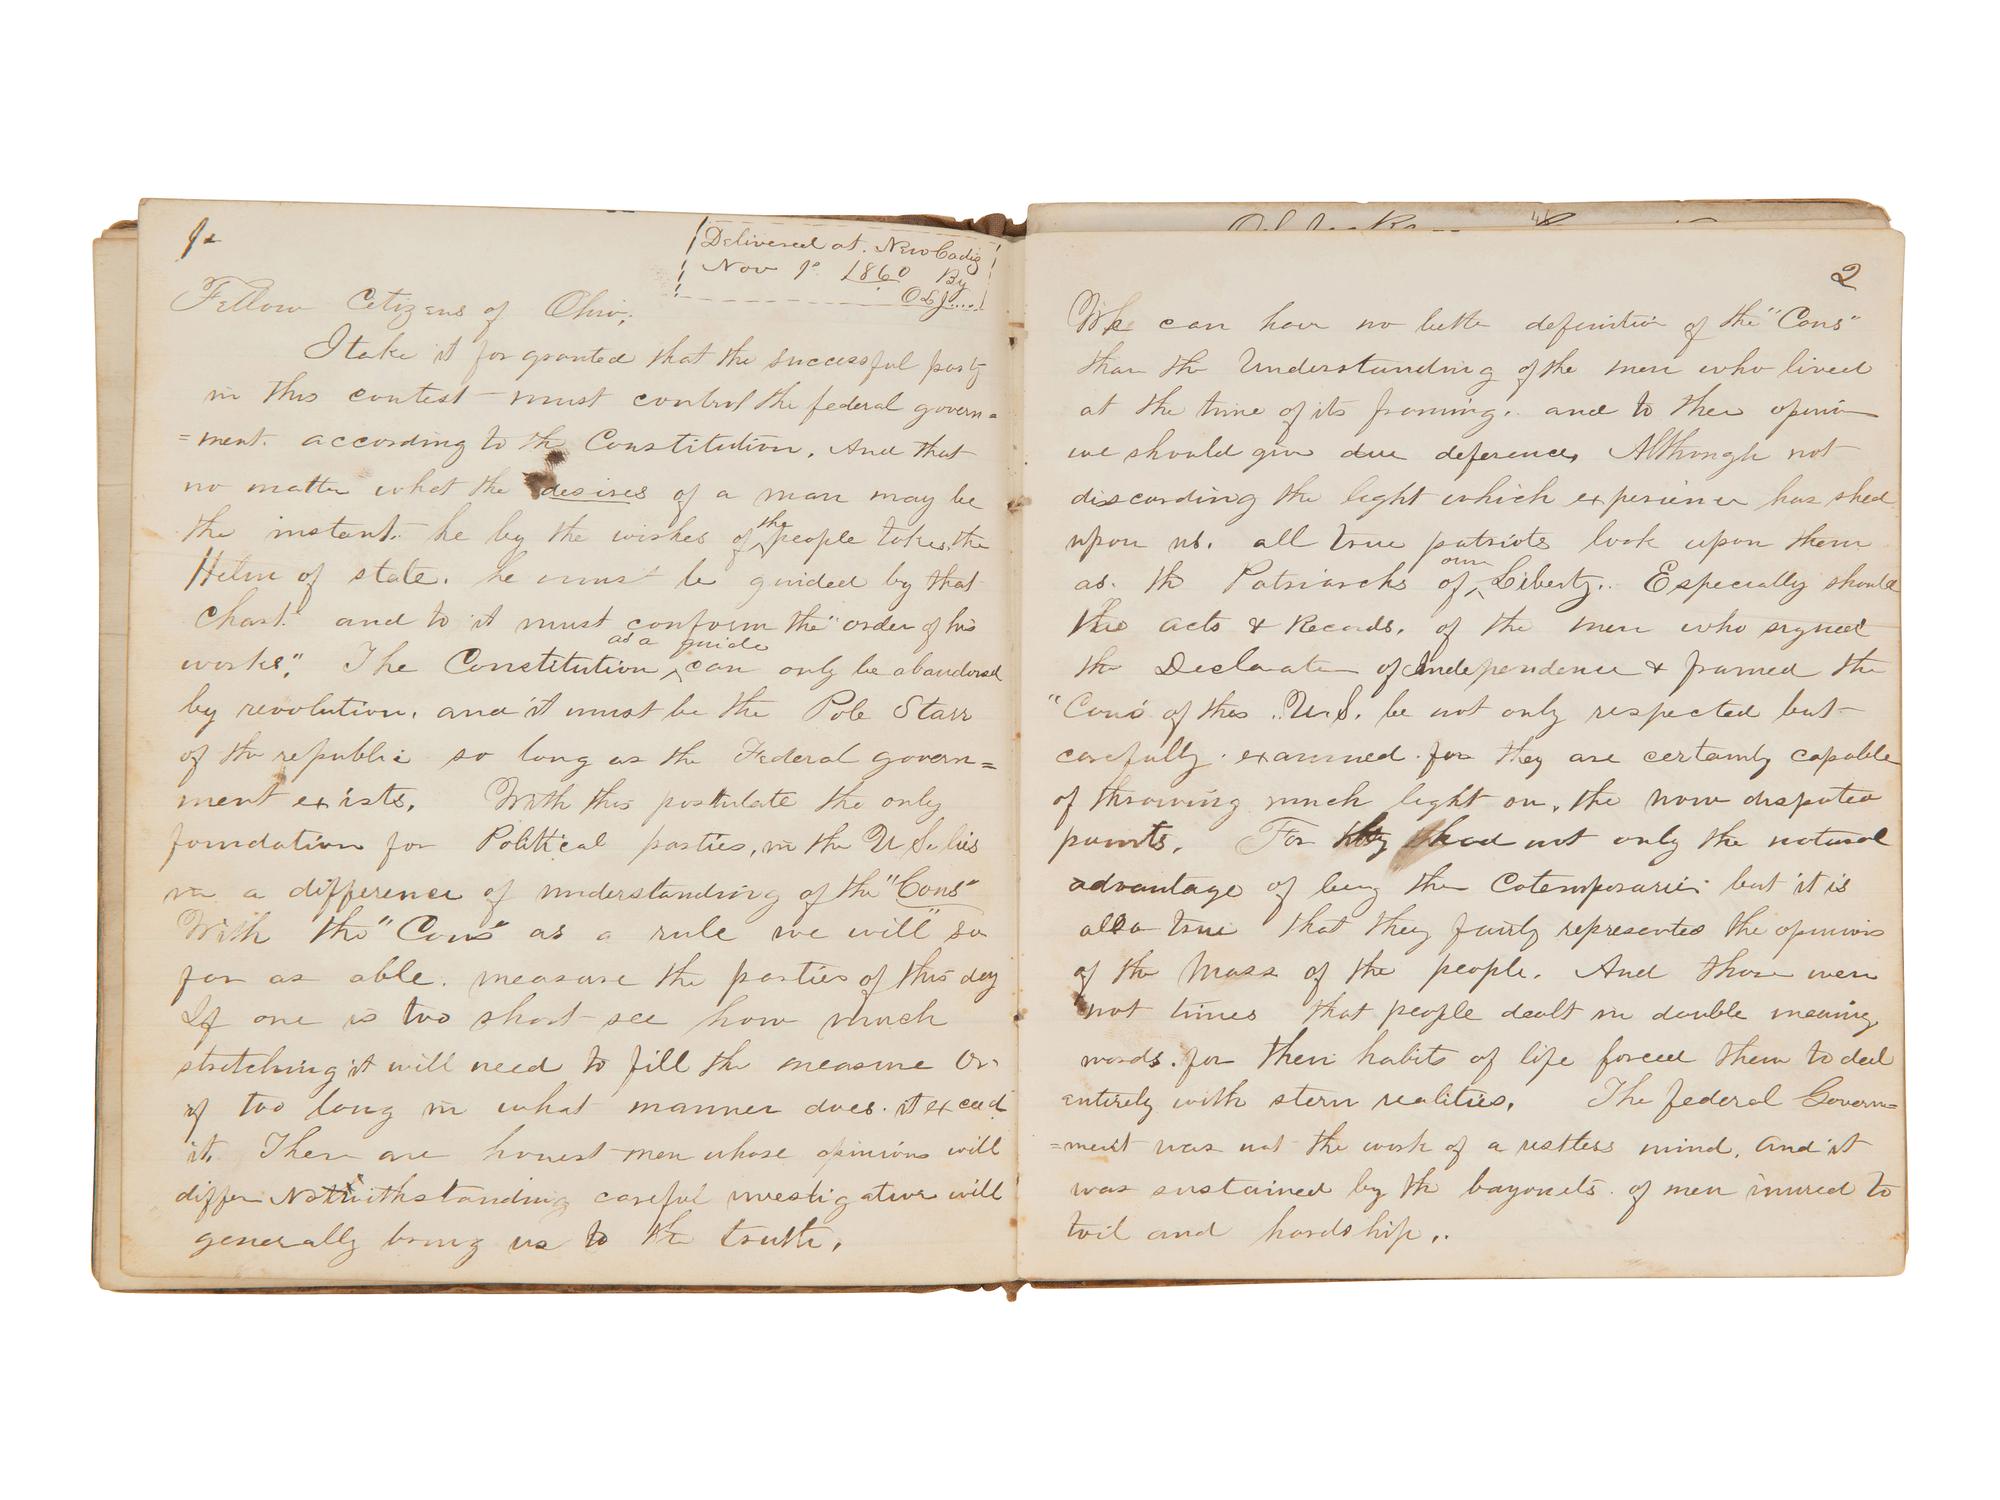 1.
Delivered at New Cadiz
Nov 1st 1860 By
OSJ....
Fellow Citizens of Ohio;
I take it for granted that the successful party
in this contest must control the federal govern=
=ment. according to the Constitution. And that
no matter what the desires of a man may be
the instant. he by the wishes of the people takes the
Helm of state. he must be guided by that
Chart. and to it must conform the "order of his
works". The Constitution as a guide can only be abandoned
by revolution. and it must be the Pole Starr
of the republic so long as the Federal govern=
ment exists. With this postulate the only
foundation for Political parties, in the U.S. lies
in a difference of understanding of the "Cons"
With the "Cons" as a rule we will so
far as able. measure the parties of this day
If one is too short see how much
stretching it will need to fill the measure Or
if too long in what manner does it exceed
it. There are honest men whose opinions will
differ Notwithstanding careful investigation will
generally bring us to the truth.
2
We can have no better definition of the "Cons"
than the Understanding of the men who lived
at the time of its framing. and to their opinion
we should give due deference, Although not
discarding the light which experience has shed
upon us. all true patriots look upon them
as the Patriarchs of our Liberty. Especially should
the acts & Records, of the men who signed
the Declaration of Independence & framed the
"Cons" of the U.S. be not only respected but
carefully examined for they are certainly capable
of throwing much light on, the now disputed
points. For they had not only the natural
advantage of being the Cotemporaries but it is
also true that they fairly represented the opinions
of the Mass of the people. And those were
not times that people dealt in double meaning
words. for their habits of life forced them to deal
entirely with stern realities. The federal Govern=
=ment was not the work of a restless mind. and it
was sustained by the bayonets of men inured to
toil and hardship..